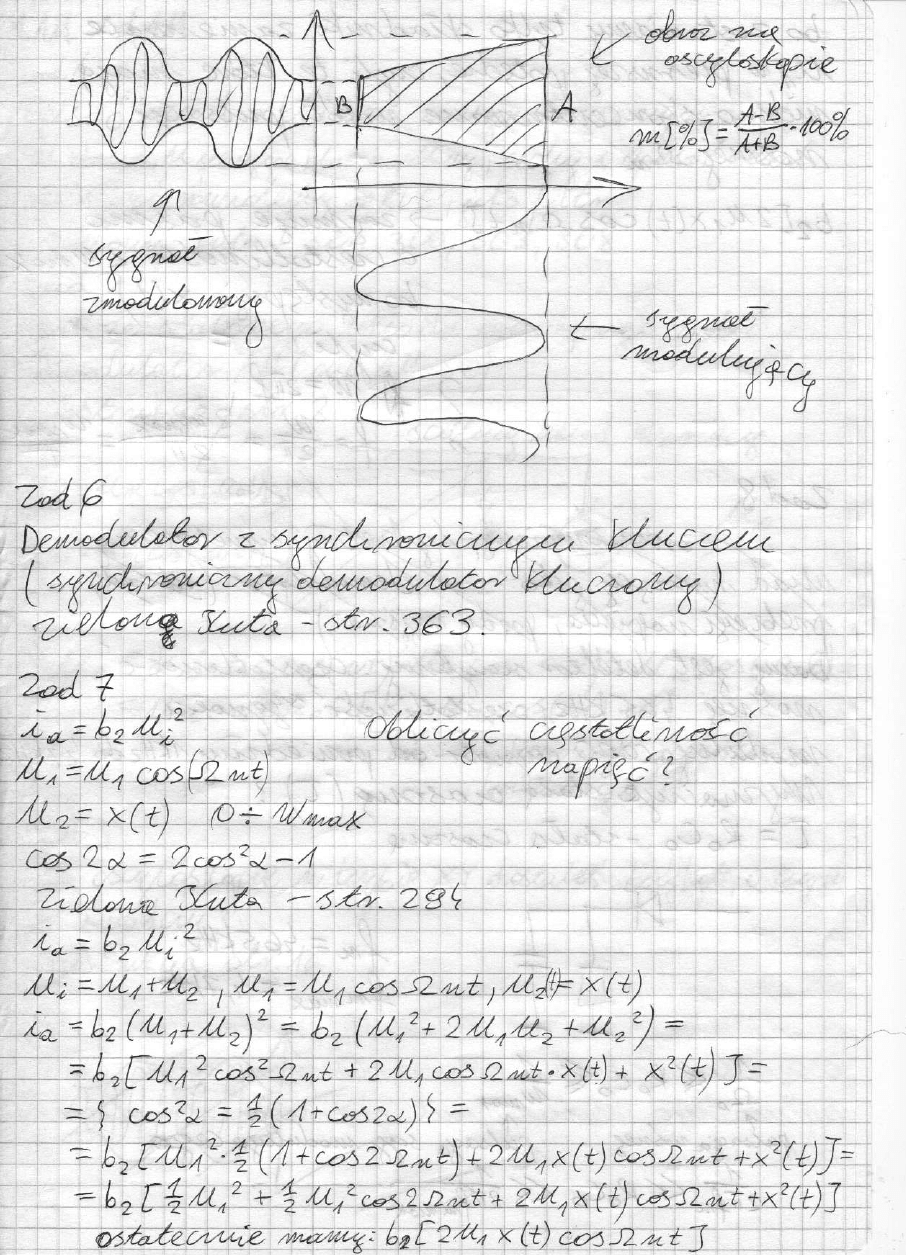 obraz na
oscyloskopie
B
A
m [%] = A-B/A+B · 100%
sygnał
zmodulowany
sygnał
modulujący
Zad 6
Demodulator z synchronicznym kluczem
(synchroniczny demodulator kluczowy)
zielona Kuta - str. 363.
Zad 7
i_a = b_2 u_i^2
Obliczyć częstotliwość
napięć?
u_1 = u_1 cos(Ωnt)
u_2 = x(t) 0 ÷ Wmax
cos 2α = 2cos²α - 1
zielona Kuta - str. 294
i_a = b_2 u_i^2
u_i = u_1 + u_2, u_1 = u_1 cos Ωnt, u_2(t) = x(t)
i_a = b_2 (u_1 + u_2)^2 = b_2 (u_1^2 + 2u_1u_2 + u_2^2) =
= b_2 [u_1^2 cos² Ωnt + 2u_1 cos Ωnt · x(t) + x²(t)] =
= { cos²α = 1/2 (1 + cos2α) } =
= b_2 [u_1^2 · 1/2 (1 + cos2Ωnt) + 2u_1 x(t) cos Ωnt + x²(t)] =
= b_2 [1/2 u_1^2 + 1/2 u_1^2 cos 2Ωnt + 2u_1 x(t) cos Ωnt + x²(t)]
ostatecznie mamy: b_2 [2u_1 x(t) cos Ωnt]